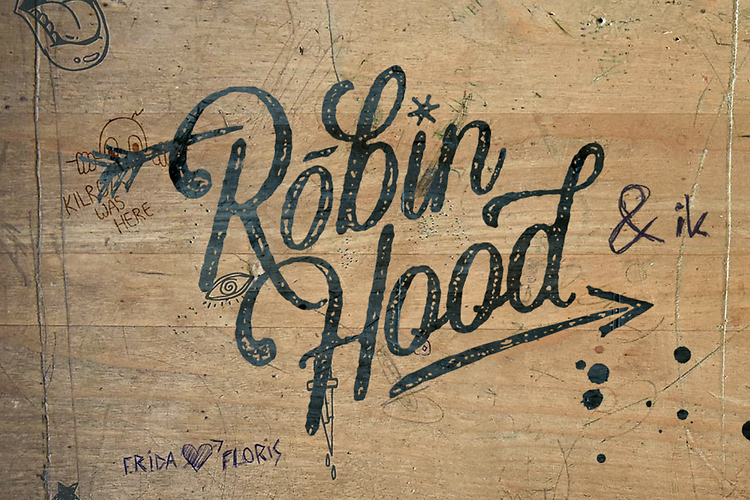 Robin
Hood
& ik
KILROY
WAS
HERE
FRIDA FLORIS